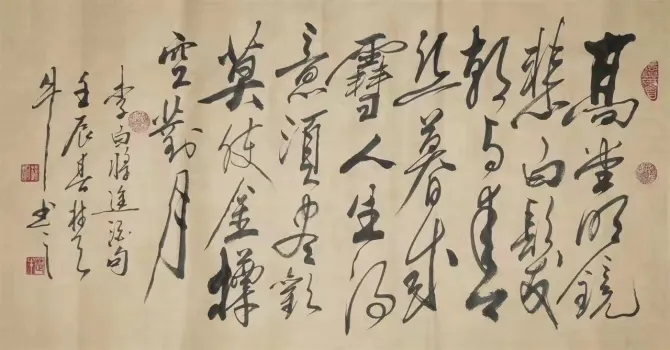 高堂明鏡
悲白髮
朝如青
丝暮成
雪人生得
意須盡歡
莫使金樽
空對月
李白將進酒句
壬辰春
牛書之